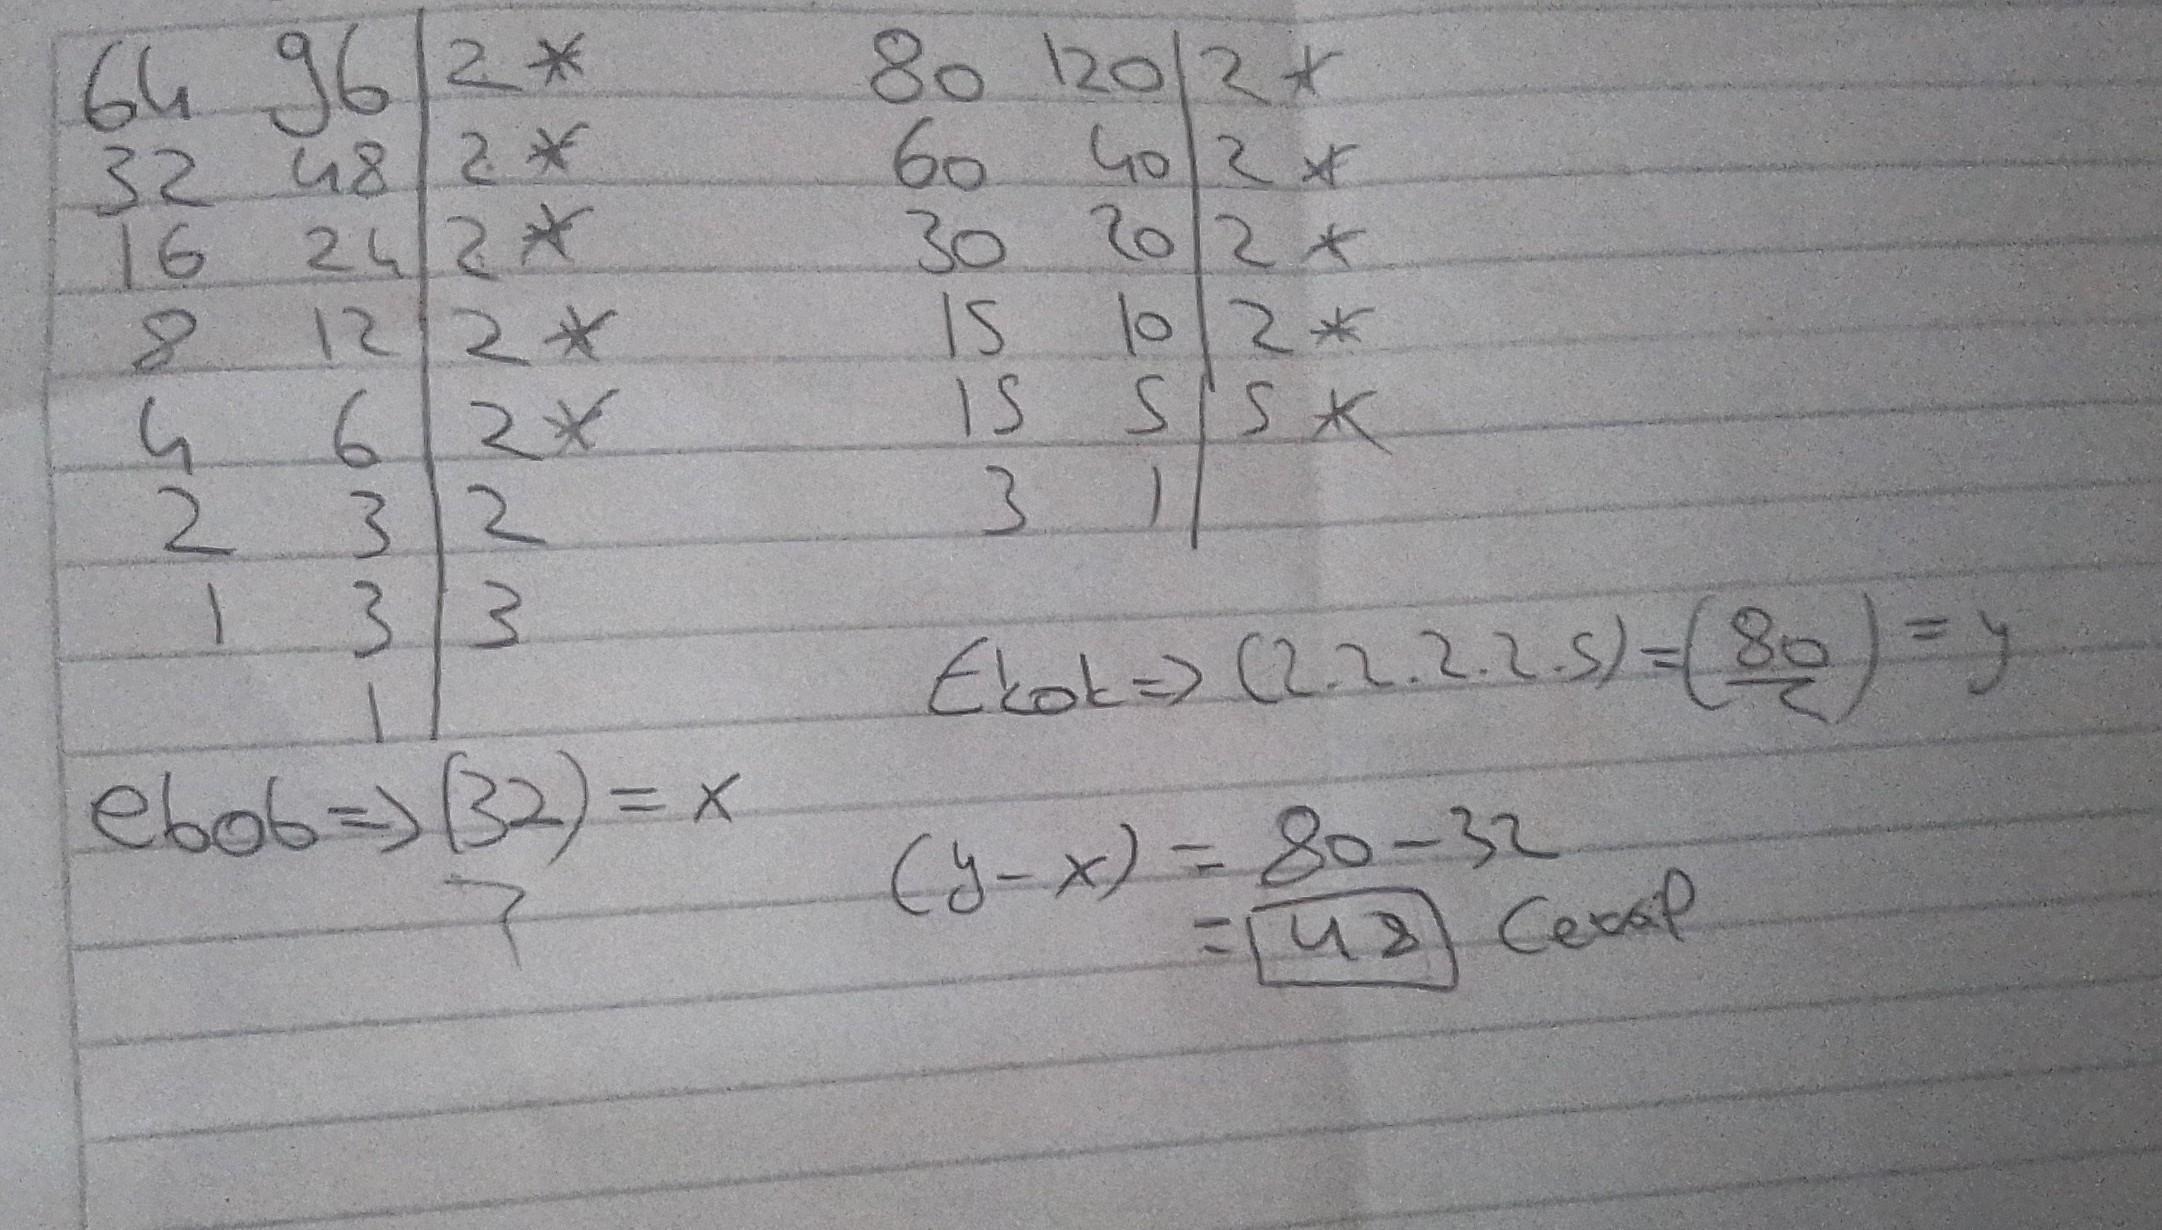 64 96 | 2 *
32 48 | 2 *
16 24 | 2 *
8 12 | 2 *
4 6 | 2 *
2 3 | 2
1 3 | 3
1 |
ebob => (32) = x
80 120 | 2 *
60 40 | 2 *
30 20 | 2 *
15 10 | 2 *
15 5 | 5 *
3 1 |
Ekok => (2.2.2.2.5) = (80) = y
(y-x) = 80-32
= 48 Cevap